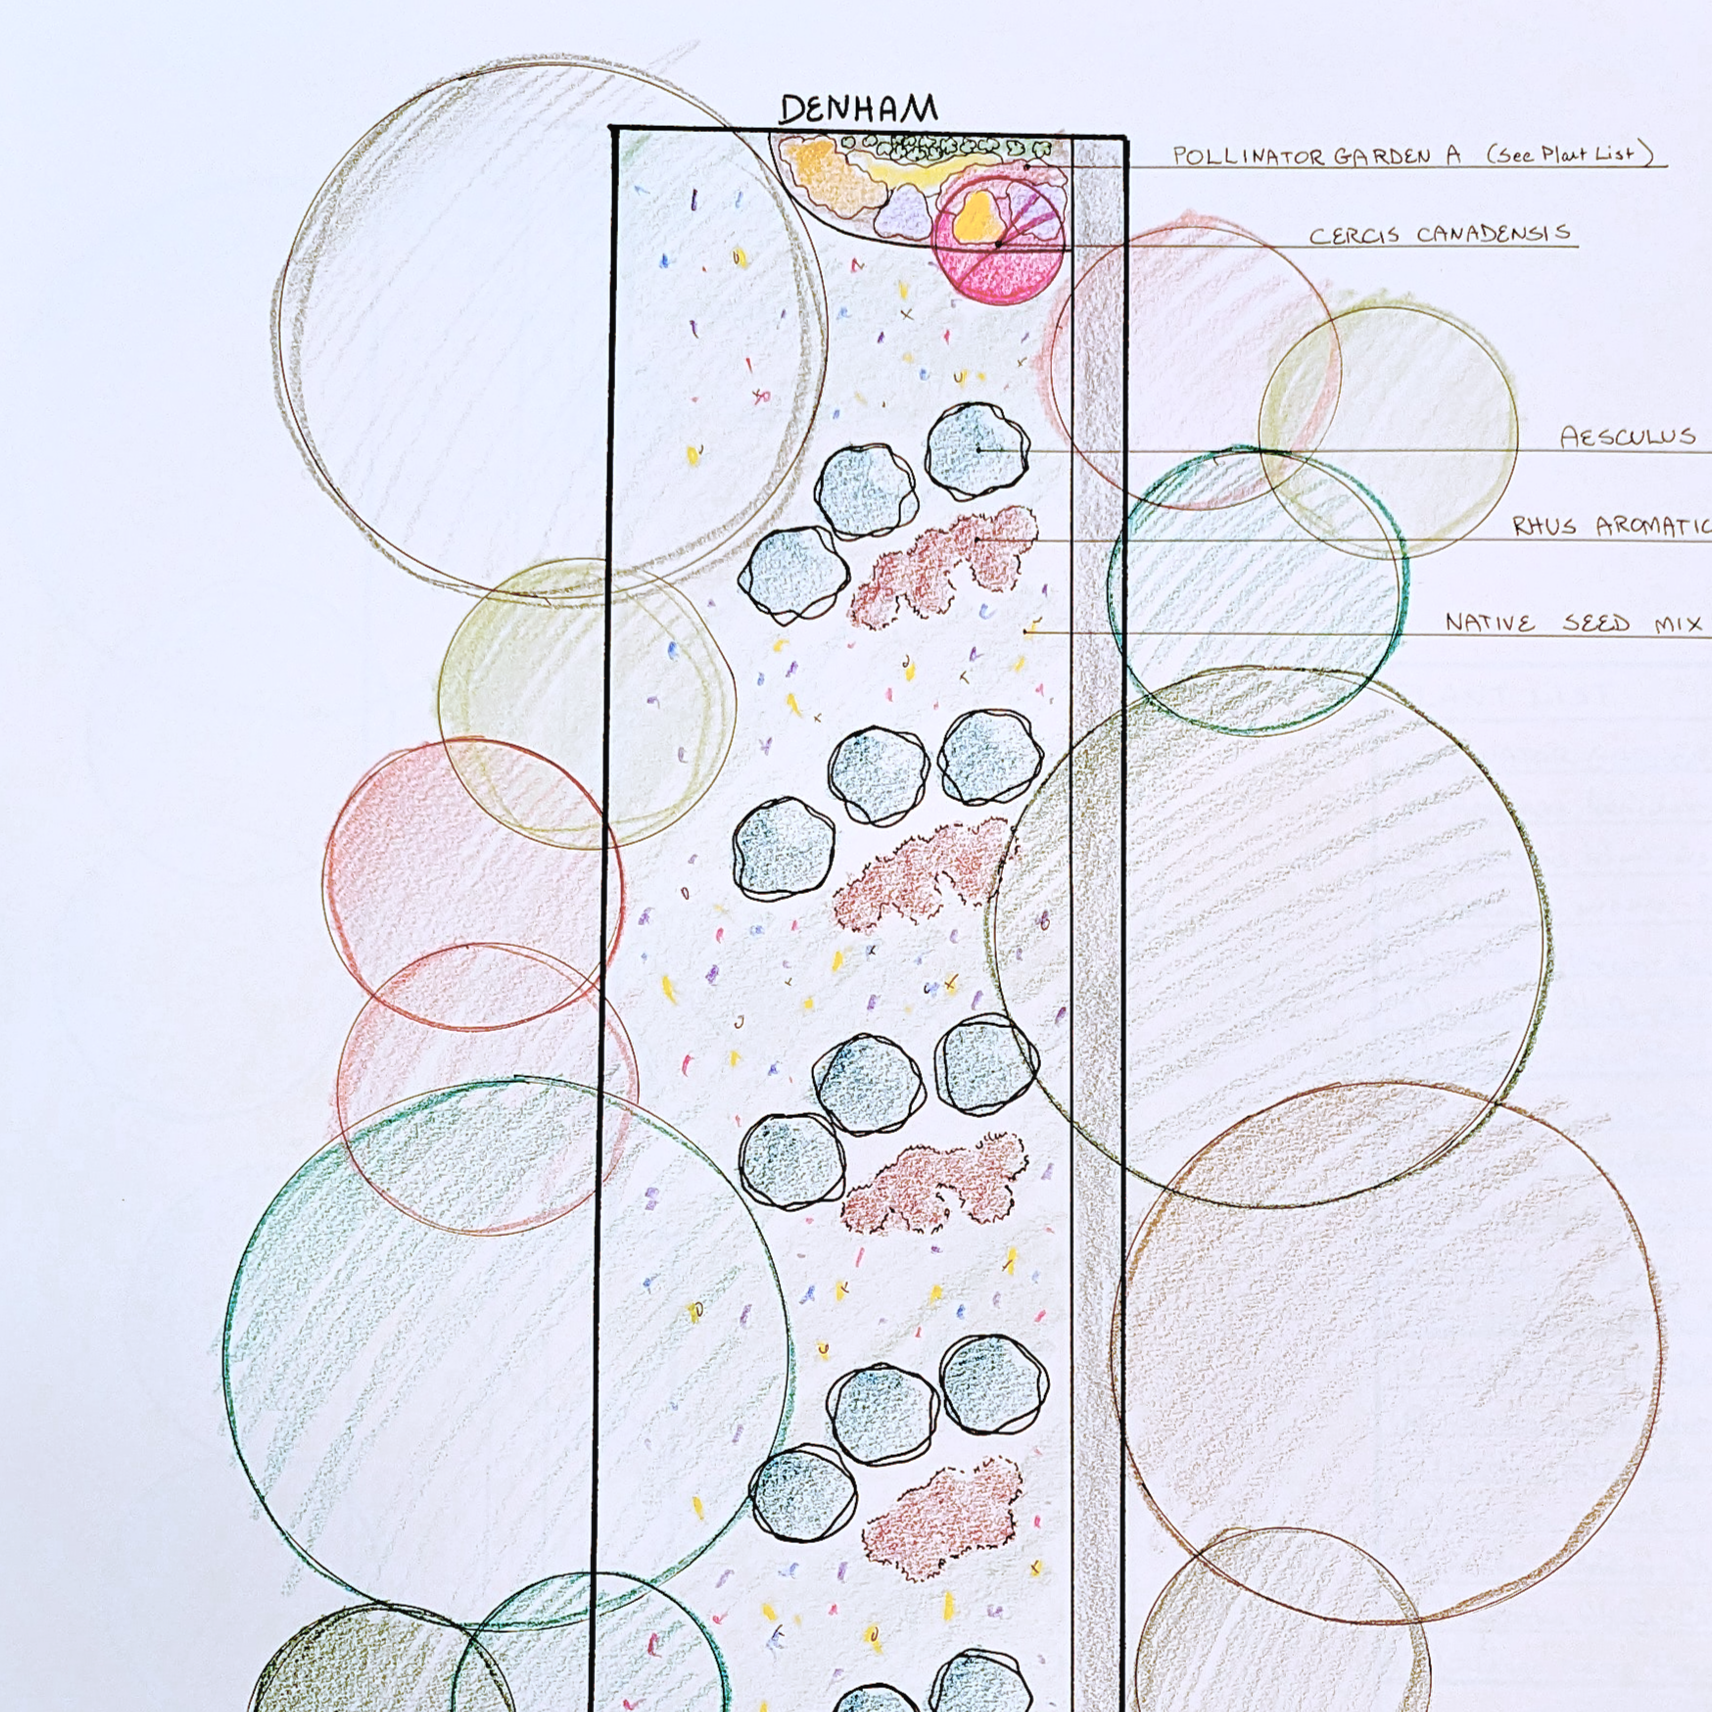 DENHAM
POLLINATOR GARDEN A (See Plant List)
CERCIS CANADENSIS
AESCULUS
RHUS AROMATIC
NATIVE SEED MIX